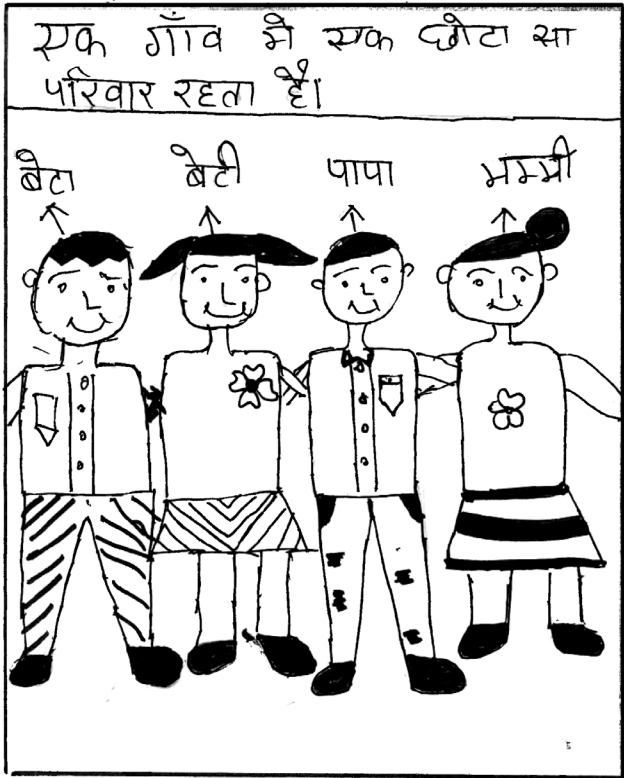 एक गाँव मे एक छोटा सा
परिवार रहता है।
बेटा बेटी पापा मम्मी